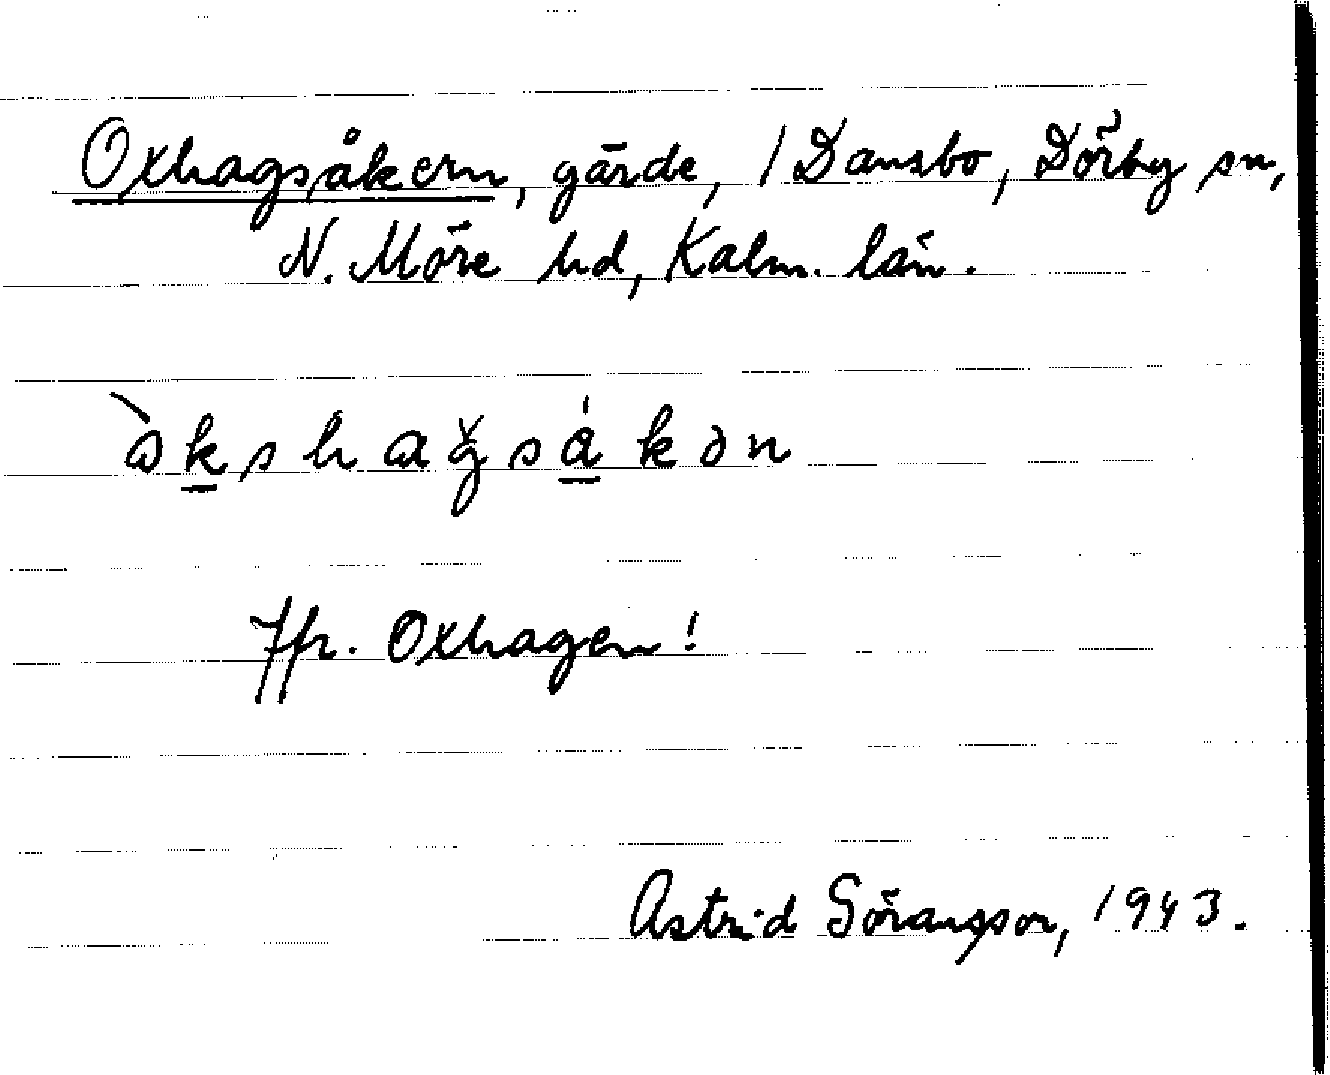 Oxhagsåkern, gärde, / Dansbo, Dörby sn,
N. Möre hd, Kalm. län.
Jfr. Oxhagen!
Astrid Göransson, 1943.